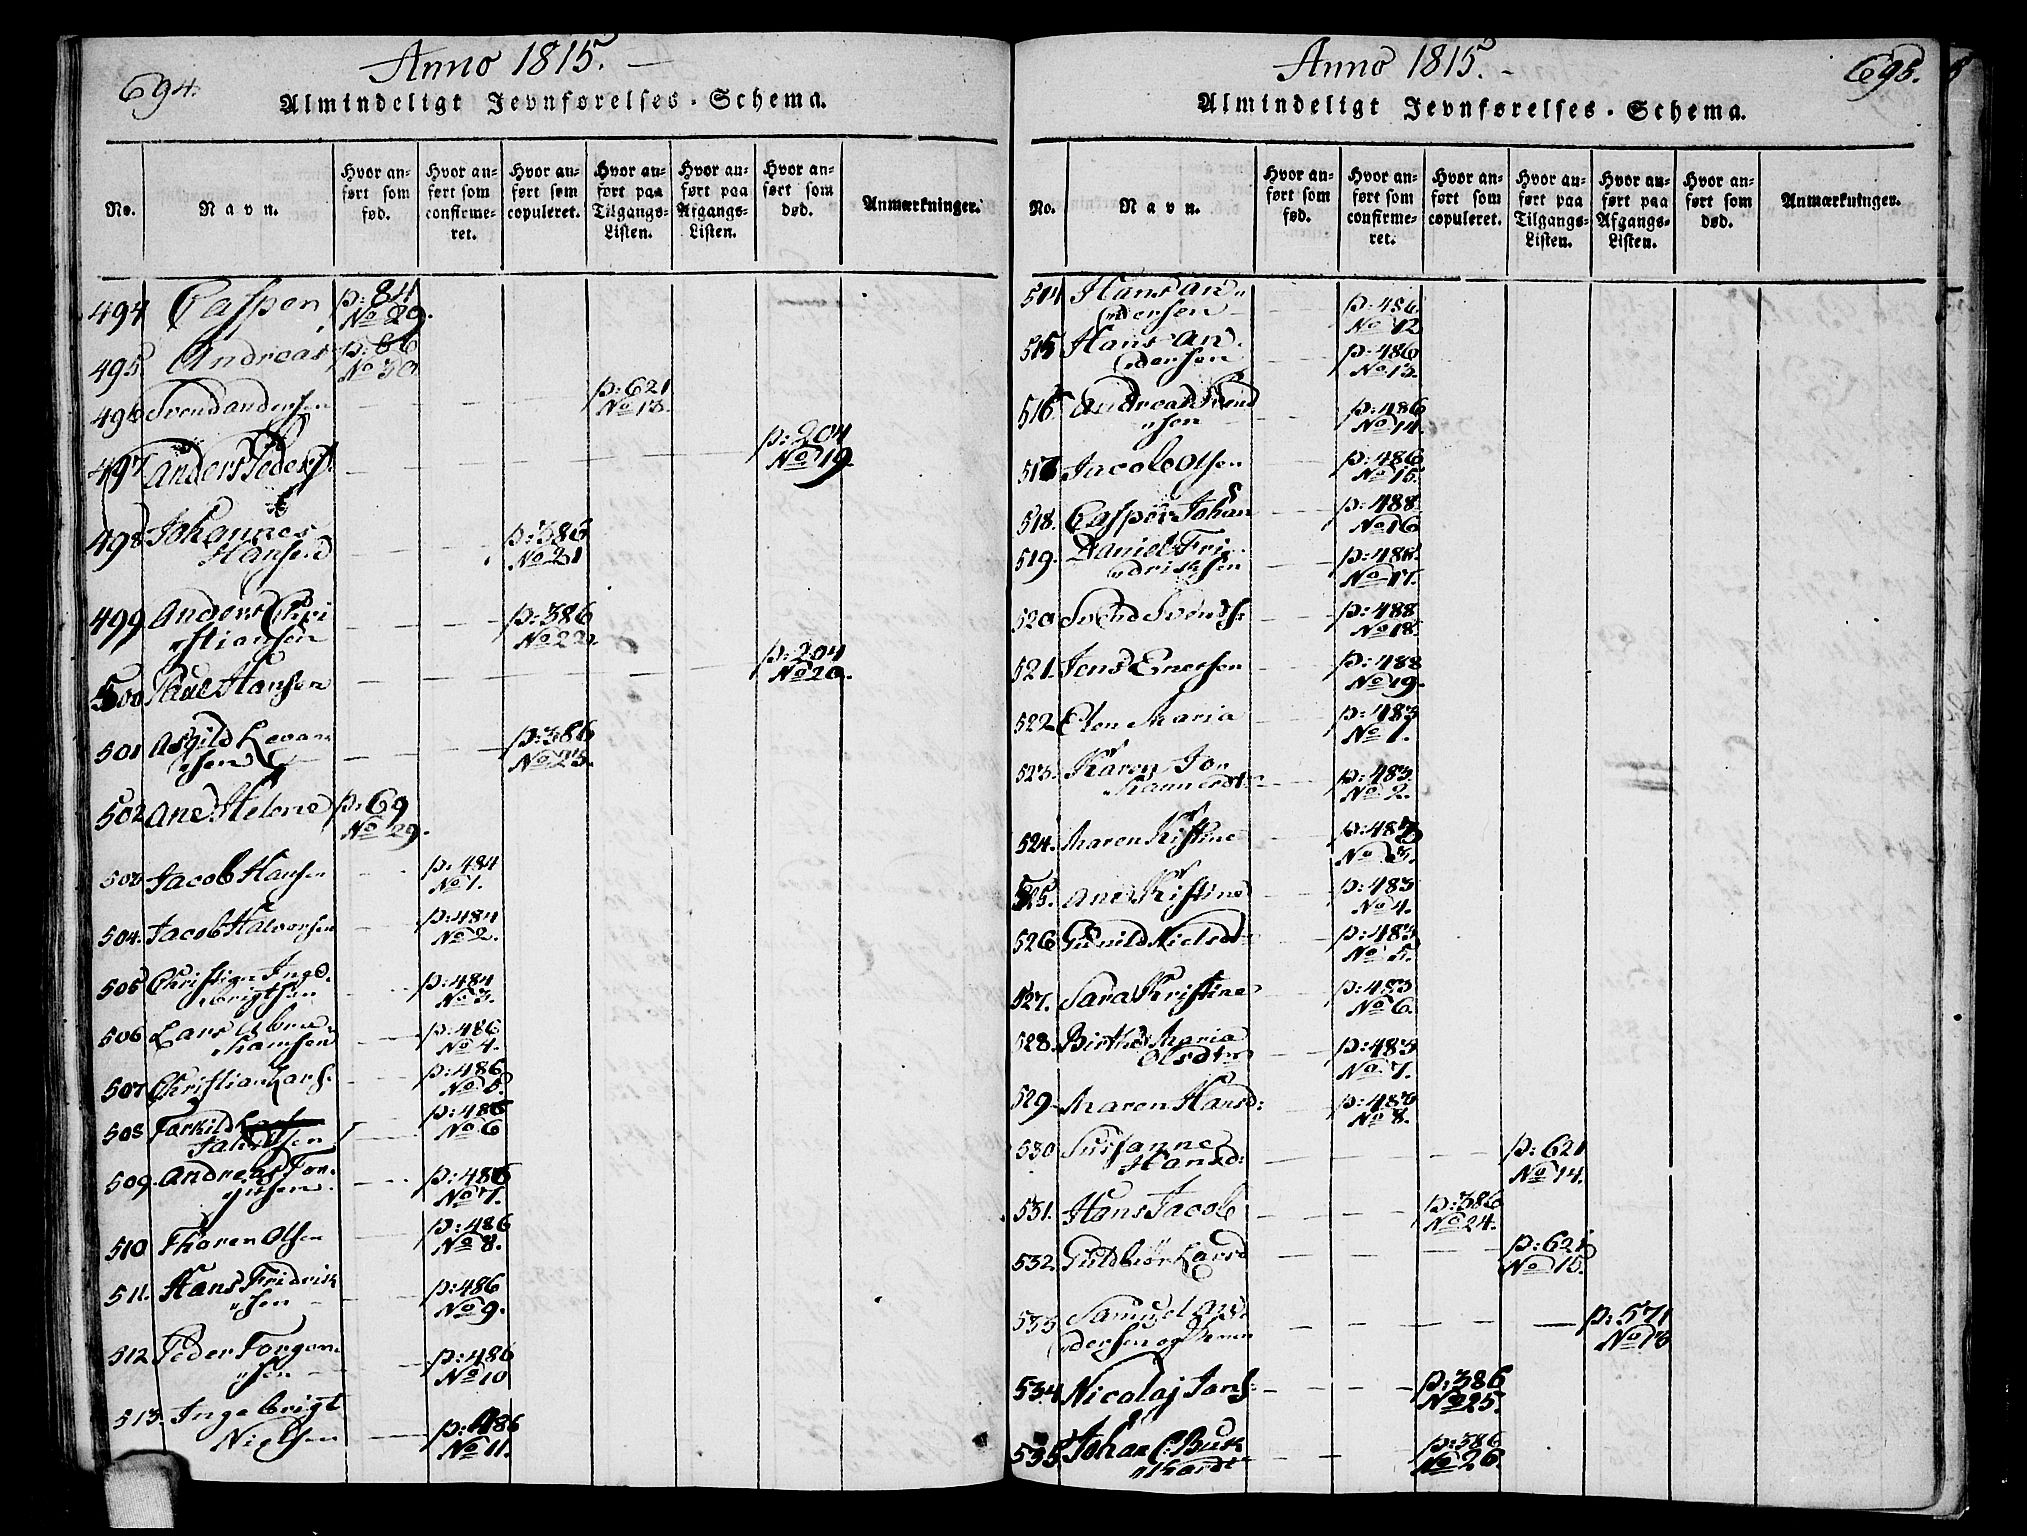 694.
Anno 1815.
Almindeligt Jevnførelses-Schema.
No.
Navn.
Hvor an-
ført som
fød.
Hvor an-
ført som
confirme-
ret.
Hvor an-
ført som
copuleret.
Hvor an-
ført paa
Tilgangs-
Listen.
Hvor an-
ført paa
Afgangs-
Listen.
Hvor an-
ført som
død.
Anmærkninger.
494 Casper p: 84
No 29.
495. Andreas p: 86
No 30
496 Svend Andersen p: 621
No 13.
497 Anders Peders: p: 204
No 19.
498 Johannes p: 386
Hansen No 21
499 Anders Chri p: 386
stiansen No 22.
500 Paul Hansen p: 204
No 20.
501 p: 386
No 23.
502 Ane Helene p: 69
No 29.
503 Jacob Hansen p: 484
No 1.
504. Jacob Halvorsen p: 484
No 2.
505 Christian Inge p: 484
brigtsen No 3.
506 Lars Abra p: 486
hamsen No 4.
507 Christian Lars: p: 486
No 5.
508 Torkild p: 486
No 6
509. Andreas p: 486
No 7.
510 Tharon Olsen p: 486
No 8.
511. Hans Fridrik p: 486
sen No 9.
512 Peder p: 486
sen No 10
513. Ingebrigt p: 486
Nielsen No 11.
Anno 1815.
695.
Almindeligt Jevnførelses-Schema.
No.
Navn.
Hvor an-
ført som
fød.
Hvor an-
ført som
confirme-
ret.
Hvor an-
ført som
copuleret.
Hvor an-
ført paa
Tilgangs-
Listen.
Hvor an-
ført paa
Afgangs-
Listen.
Hvor an-
ført som
død.
Anmærkninger.
514 Hans An
dersen p: 486
No 12
515 Hans An
dersen p: 486
No 13.
516 Andreas Svend
sen p: 486
No 14.
517 Jacob Olsen p: 486
No 15.
518. Casper Johan p: 488
No 16
519. Daniel Fri p: 488
driksen No 17.
520 Svend Svends: p: 488
No 18.
521. Jens Enersen p: 488
No 19.
522 Elen Maria p: 483
No 1.
523. Karen p: 483
No 2.
524. Maren Kistine p: 483
No 3.
525. Ane Kistine p: 483
No 4.
526 Gunild Nielsd: p: 483
No 5.
527. Sara Kristine p: 483
No 6.
528. Birthe Maria
Olsdtr p: 483
No 7.
529. Maren Hansd: p: 483
No 8.
530 Susanne p: 621
Hansd: No 14.
531. Hans Jacob p: 386
No 24.
532. Guldbiør Larsd p: 621
No 15.
533 Samuel An p: 571
dersen og No 13
534 Nicolaj Jans: p: 386
No 25.
535 Johan C: Buk p: 386
hardt No 26.